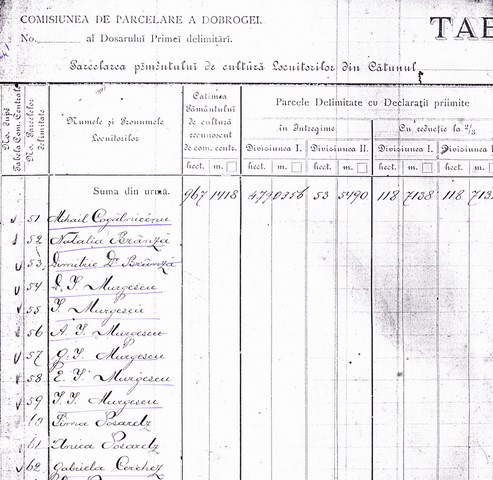 COMISIUNEA DE PARCELARE A DOBROGEI.
TAB
No. al Dosarului Primei delimitări.
Parcelarea pământului de cultură Locuitorilor din Cătunul
No. după Tabela Com. Centrale
No. Parcelelor delimitate
Numele și Pronumele Locuitorilor
Câtimea Pământului de cultură recunoscut de com. centr.
Parcele Delimitate cu Declarații priimite
în Intregime
Cu reducție la 2/3
Diviziunea I. Diviziunea II. Diviziunea I.
hect. m. hect. m. hect. m. hect. m. hect. m.
Suma din urmă. 967 1418 53 5490 118 7138 118
51 Mihail Cogălniceanu
52 Natalia Brânză
53 Dimitrie Dr Brânză
54 D. I. Murgescu
55 I. Murgescu
56 A. I. Murgescu
57 G. I. Murgescu
58 E. I. Murgescu
59 I. I. Murgescu
Posaretz
61 Anica Posaretz
62 Gabriela Cerchez